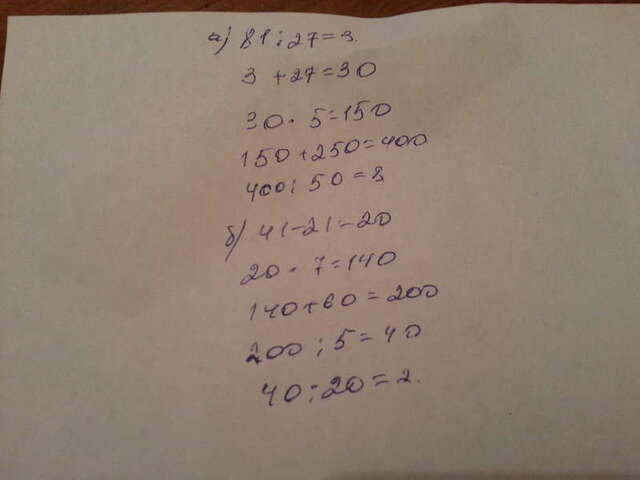 а) 81 : 27 = 3.
3 + 27 = 30
30 · 5 = 150
150 + 250 = 400
400 : 50 = 8
б) 41 - 21 = 20
20 · 7 = 140
140 + 60 = 200
200 : 5 = 40
40 : 20 = 2.